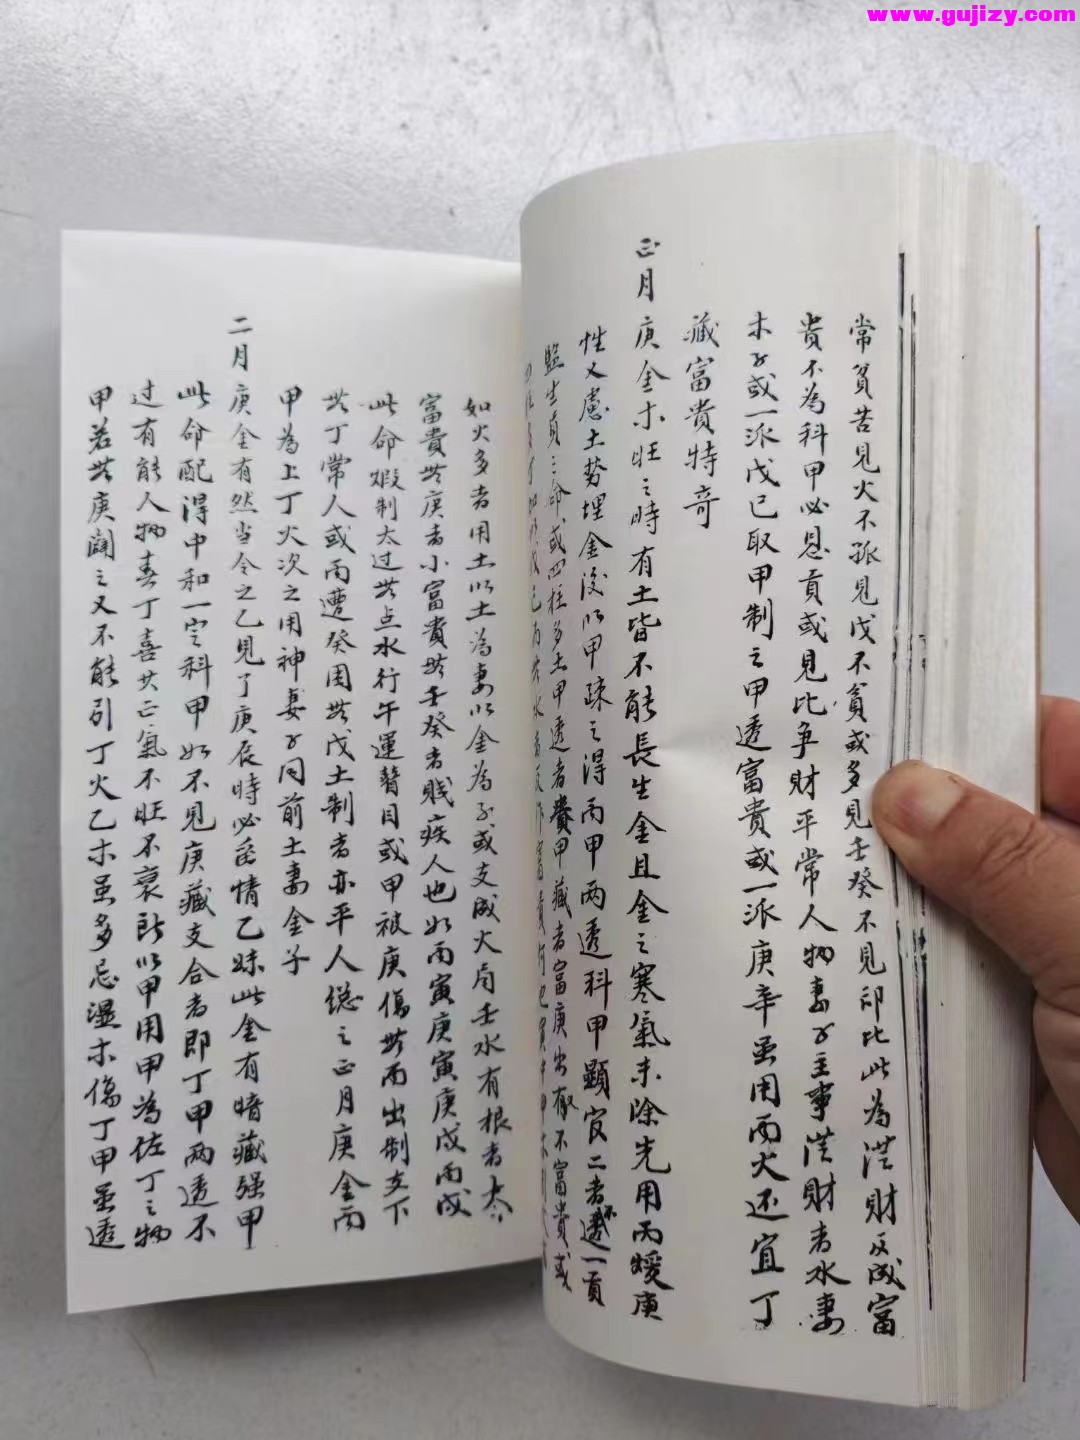 www.gujizy.com
常貧苦見火不孤見戊不貧或多見壬癸不見印比此為濫財反成富
貴不為科甲必恩貢或見比争財平常人物妻子主事濫財者水妻
木子或一派戊己取甲制之甲透富貴或一派庚辛虽用丙火还宜丁
藏富貴特奇
正月庚金木旺之時有土皆不能長生金且金之寒氣未除先用丙煖庚
性又慮土势埋金没以甲疎之得丙甲两透科甲顯宦二者不透一貢
監生員之命或四柱多土甲透者貴甲藏者富庚出破不富貴或
如火多者用土以土為妻以金為子或支成火局壬水有根者大
富貴無庚者小富貴無壬癸者賎疾人也如丙寅庚寅庚戌丙戌
此命煅制太过無点水行午運瞽目或甲被庚傷無丙出制支下
無丁常人或丙遭癸困無戊土制者亦平人總之正月庚金丙
甲為上丁火次之用神妻子同前土妻金子
二月庚金有然当令之乙見了庚辰時必留情乙妹此金有暗藏强甲
此命配得中和一定科甲如不見庚藏支合者即丁甲两透不
过有能人物春丁喜其正氣不旺不衰所以甲用甲為佐丁之物
甲若無庚闢之又不能引丁火乙木虽多忌濕木傷丁甲虽透